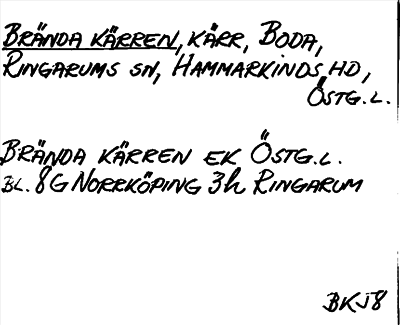 BRÄNDA KÄRREN, KÄRR, BODA,
RINGARUMS SN, HAMMARKINDS HD,
ÖSTG.L.
BRÄNDA KÄRREN EK ÖSTG.L.
BL. 8G NORRKÖPING 3h RINGARUM
BKJ8